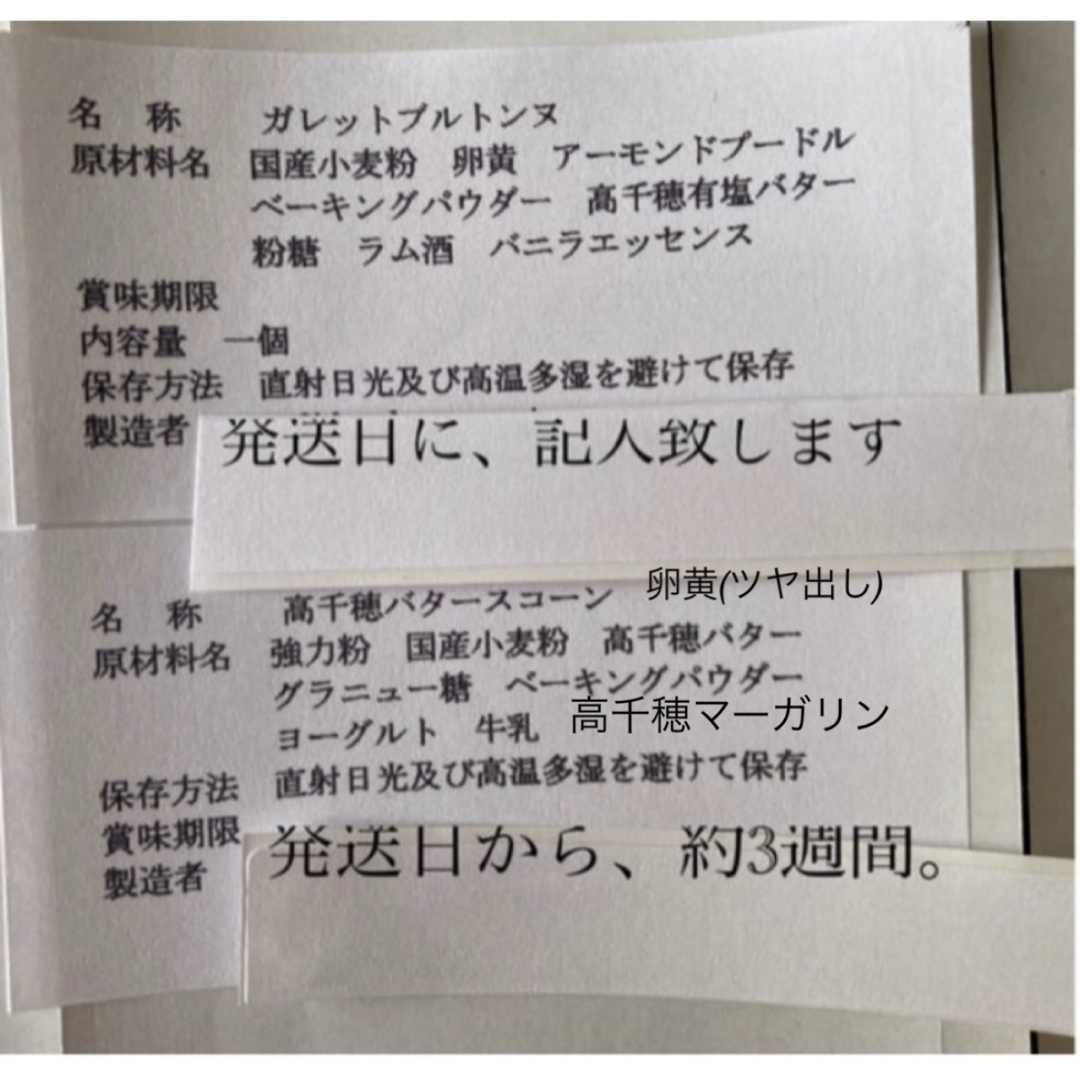 名 称 ガレットブルトンヌ
原材料名 国産小麦粉 卵黄 アーモンドプードル
ベーキングパウダー 高千穂有塩バター
粉糖 ラム酒 バニラエッセンス
賞味期限
内容量 一個
保存方法 直射日光及び高温多湿を避けて保存
製造者
発送日に、記入致します
卵黄(ツヤ出し)
名 称 高千穂バタースコーン
原材料名 強力粉 国産小麦粉 高千穂バター
グラニュー糖 ベーキングパウダー
ヨーグルト 牛乳 高千穂マーガリン
保存方法 直射日光及び高温多湿を避けて保存
賞味期限 発送日から、約3週間。
製造者